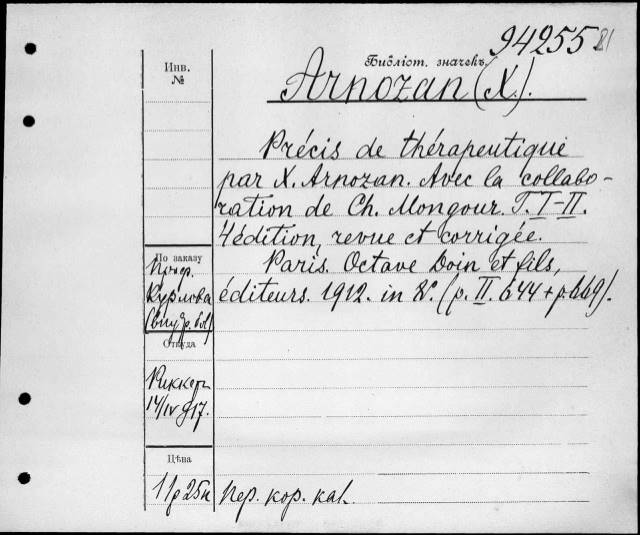 94255 81
Библіот. значекъ
Инв.
№
Arnozan (X.).
Précis de thérapeutique
par X. Arnozan. Avec la collabo-
ration de Ch. Mongour. T. I-II.
4 édition, revue et corrigée.
По заказу
Проф.
Курлова
(Внутр. бол)
Paris. Octave Doin et fils,
éditeurs. 1912. in 8°. (p. II. 644 + p. 669).
Откуда
Риккеръ
14/IV 917.
Цѣна
11р 25к
Пер. кор. кал.